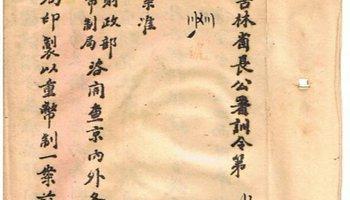 吉林省長公署訓令第
案准
財政部
幣制局咨開查京內外各
局印製以重幣制一案前